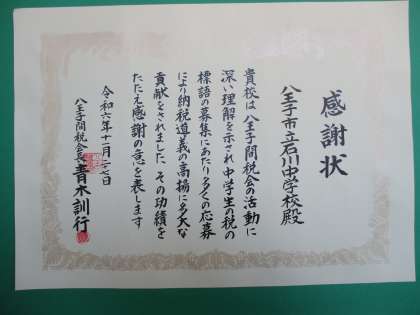 感謝状
八王子市立石川中学校殿
貴校は八王子間税会の活動に
深い理解を示され中学生の税の
標語の募集にあたり多くの応募
により納税道義の高揚に多大な
貢献をされました その功績を
たたえ感謝の意を表します
令和六年十一月二七日
八王子間税会長 青木訓行